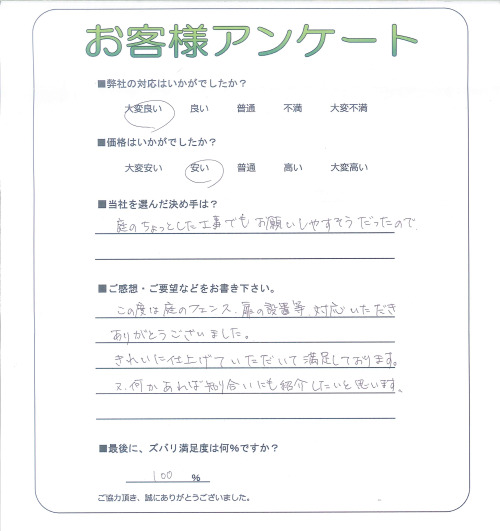 お客様アンケート
■弊社の対応はいかがでしたか？
大変良い 良い 普通 不満 大変不満
■価格はいかがでしたか？
大変安い 安い 普通 高い 大変高い
■当社を選んだ決め手は？
庭のちょっとした工事でもお願いしやすそうだったので
■ご感想・ご要望などをお書き下さい。
この度は庭のフェンス、扉の設置等、対応いただき
ありがとうございました。
きれいに仕上げていただいて満足しております。
又、何かあれば知り合いにも紹介したいと思います。
■最後に、ズバリ満足度は何％ですか？
100 ％
ご協力頂き、誠にありがとうございました。